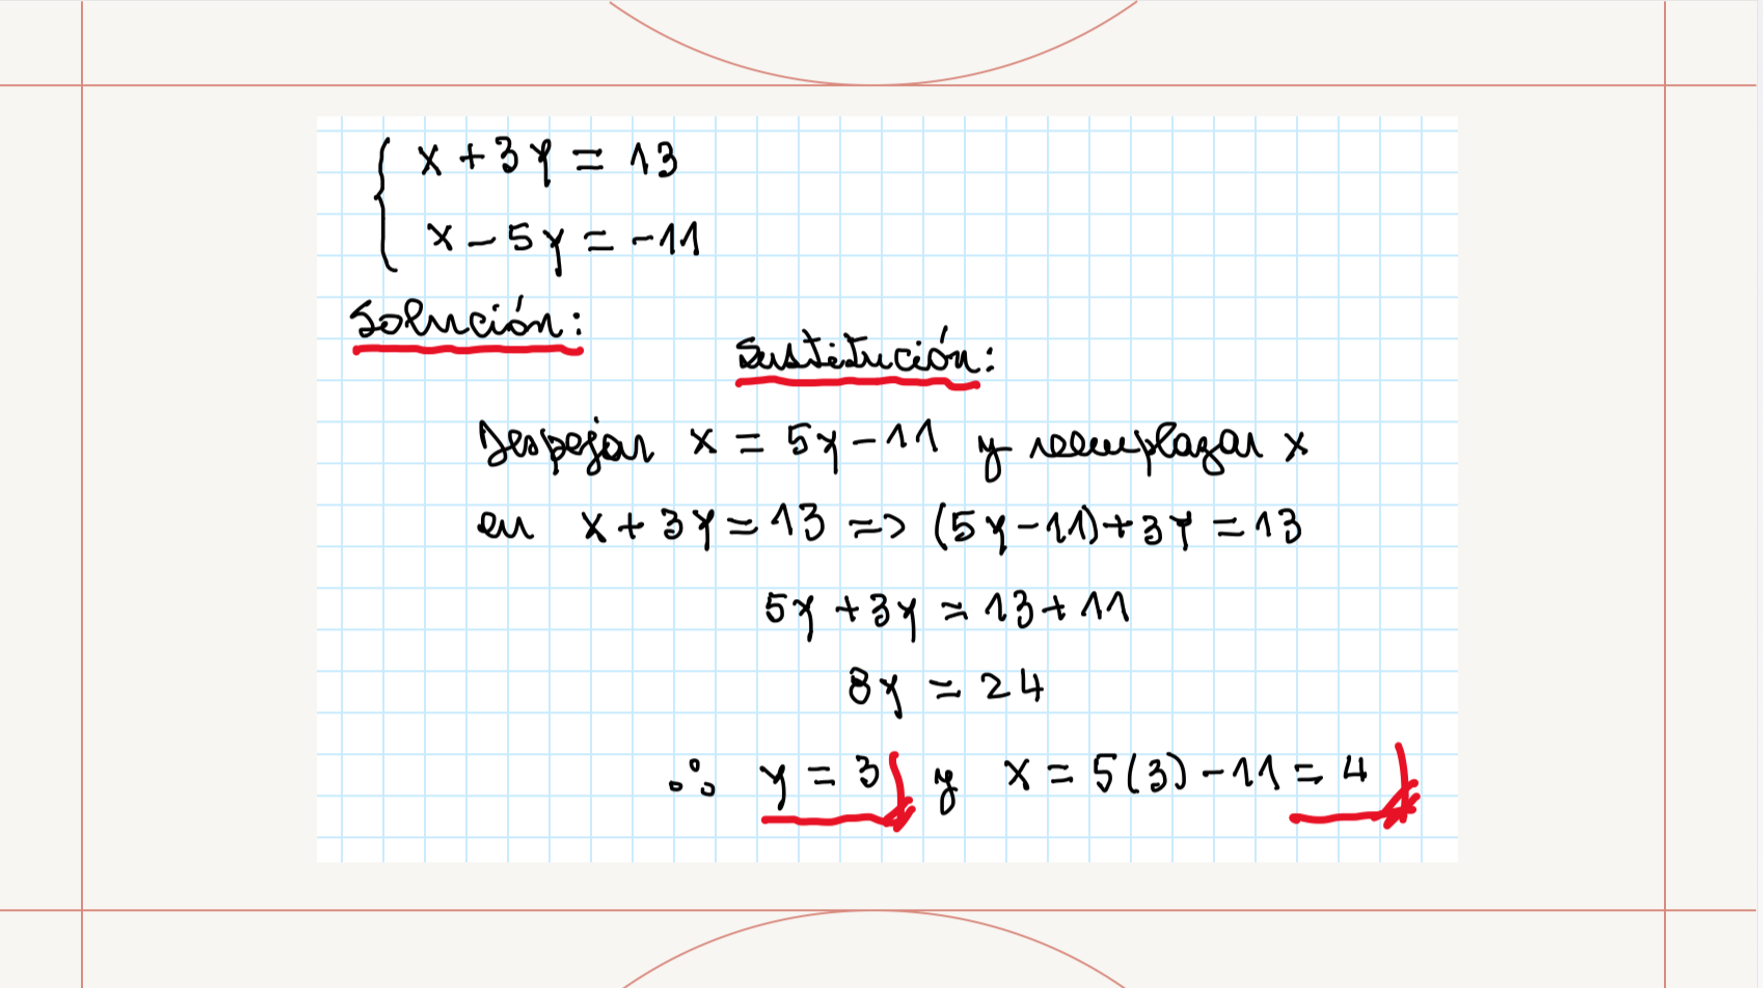 x + 3y = 13
x - 5y = -11
Solución:
Sustitución:
Despejar x = 5y - 11 y reemplazar x
en x + 3y = 13 => (5y - 11) + 3y = 13
5y + 3y = 13 + 11
8y = 24
∴ y = 3 y x = 5(3) - 11 = 4